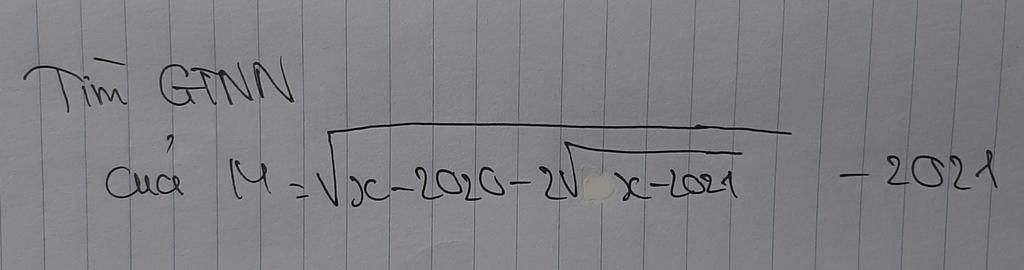 Tìm GTNN
của M = √(x-2020-2√(x-2021)) - 2021